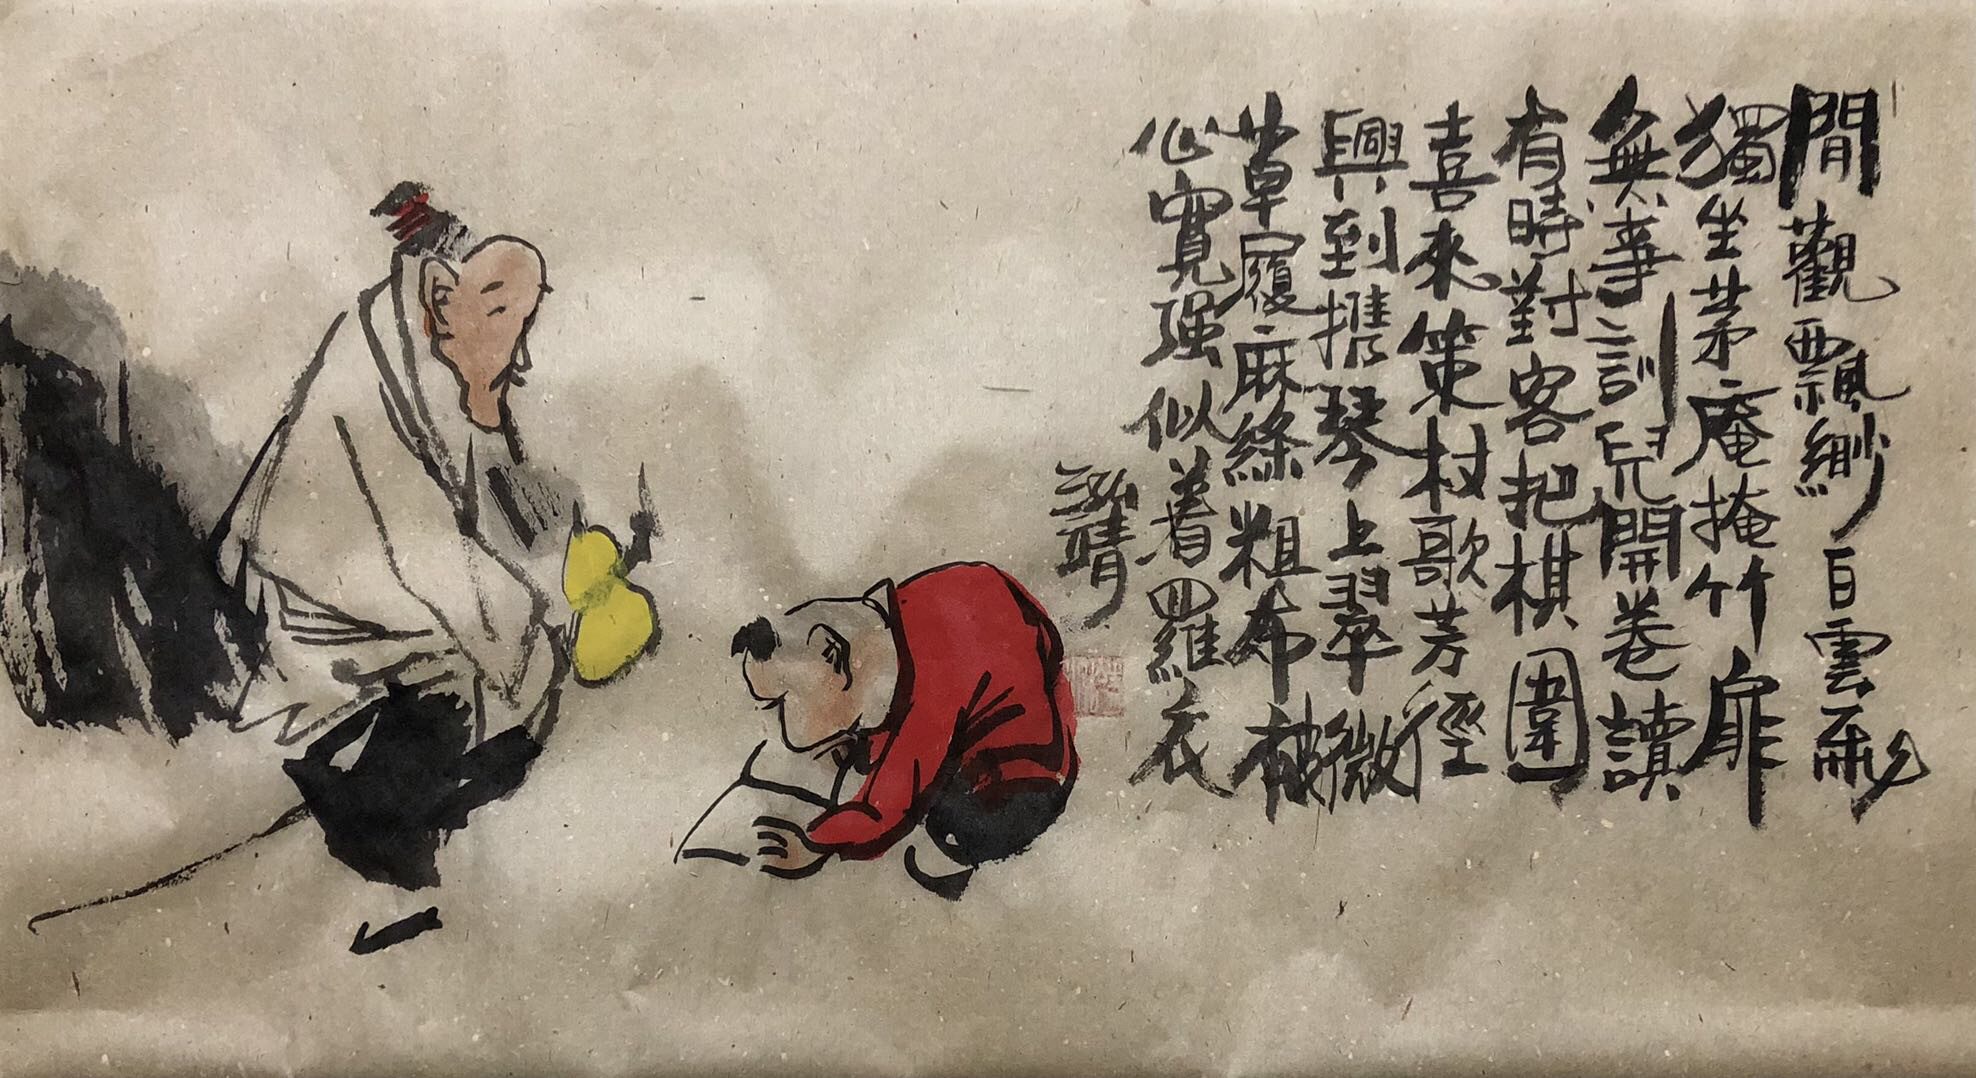 閒觀飄緲白雲飛
獨坐茅庵掩竹扉
無事訓兒開卷讀
有時對客把棋圍
喜來策杖歌芳徑
興到攜琴上翠微
草履麻絲粗布被
心寬强似着羅衣
泓靖